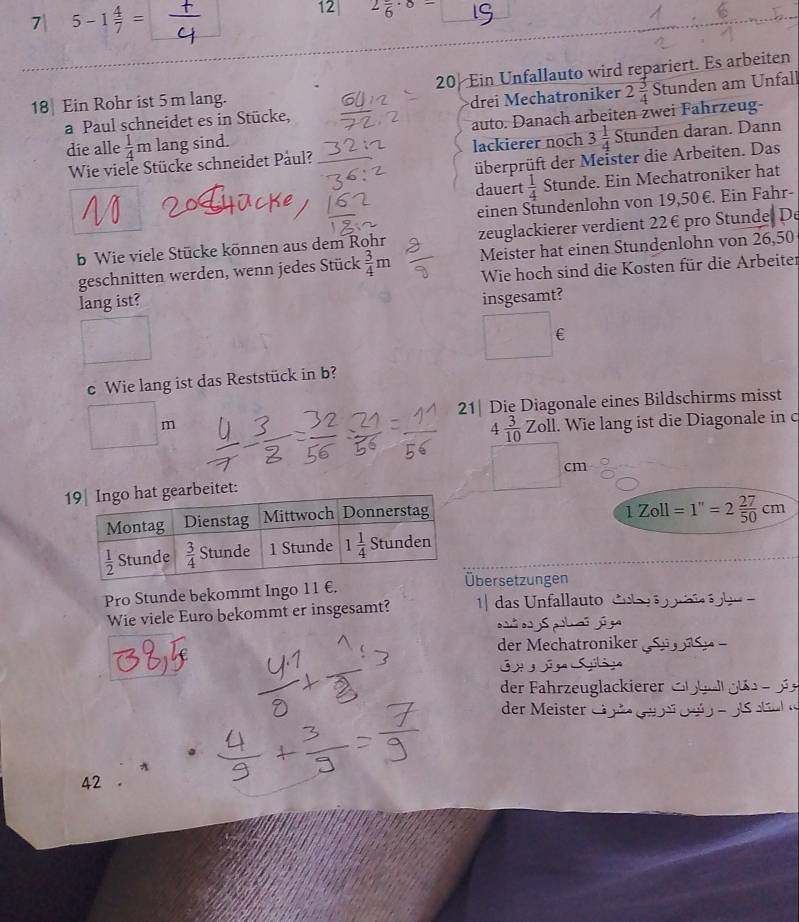 7| 5 − 1 4/7 =
12|
19
18| Ein Rohr ist 5 m lang.
a Paul schneidet es in Stücke,
die alle 1/4 m lang sind.
Wie viele Stücke schneidet Paul?
20 Stücke
64:2
72:2
32:2
36:2
16:2
18:2
8/9
b Wie viele Stücke können aus dem Rohr
geschnitten werden, wenn jedes Stück 3/4 m
lang ist?
c Wie lang ist das Reststück in b?
m
4/7 − 3/8 = 32/56 − 21/56 = 11/56
19| Ingo hat gearbeitet:
Montag Dienstag Mittwoch Donnerstag
1/2 Stunde 3/4 Stunde 1 Stunde 1 1/4 Stunden
Pro Stunde bekommt Ingo 11 €.
Wie viele Euro bekommt er insgesamt?
38,5
4/9 + 3/9 = 7/9
42
20| Ein Unfallauto wird repariert. Es arbeiten
drei Mechatroniker 2 3/4 Stunden am Unfall
auto. Danach arbeiten zwei Fahrzeug-
lackierer noch 3 1/4 Stunden daran. Dann
überprüft der Meister die Arbeiten. Das
dauert 1/4 Stunde. Ein Mechatroniker hat
einen Stundenlohn von 19,50 €. Ein Fahr-
zeuglackierer verdient 22 € pro Stunde. De
Meister hat einen Stundenlohn von 26,50
Wie hoch sind die Kosten für die Arbeiter
insgesamt?
€
21| Die Diagonale eines Bildschirms misst
4 3/10 Zoll. Wie lang ist die Diagonale in c
cm
1 Zoll = 1" = 2 27/50 cm
Übersetzungen
1| das Unfallauto
der Mechatroniker
der Fahrzeuglackierer
der Meister